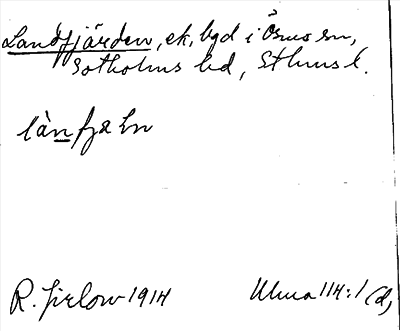 Landfjärden, ek, bgd i Ösmo sn,
Sotholms hd, Sthms l.
lànfjæ̨ɳ
R. Jirlow 1914 Ulma 114:1 (d)